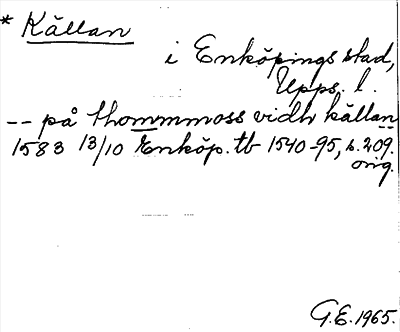 * Källan
i Enköpings stad,
Upps. l.
-- på thommmoss vidh källan --
1583 13/10 Enköp. tb 1540-95, s. 209.
orig.
G.E. 1965.